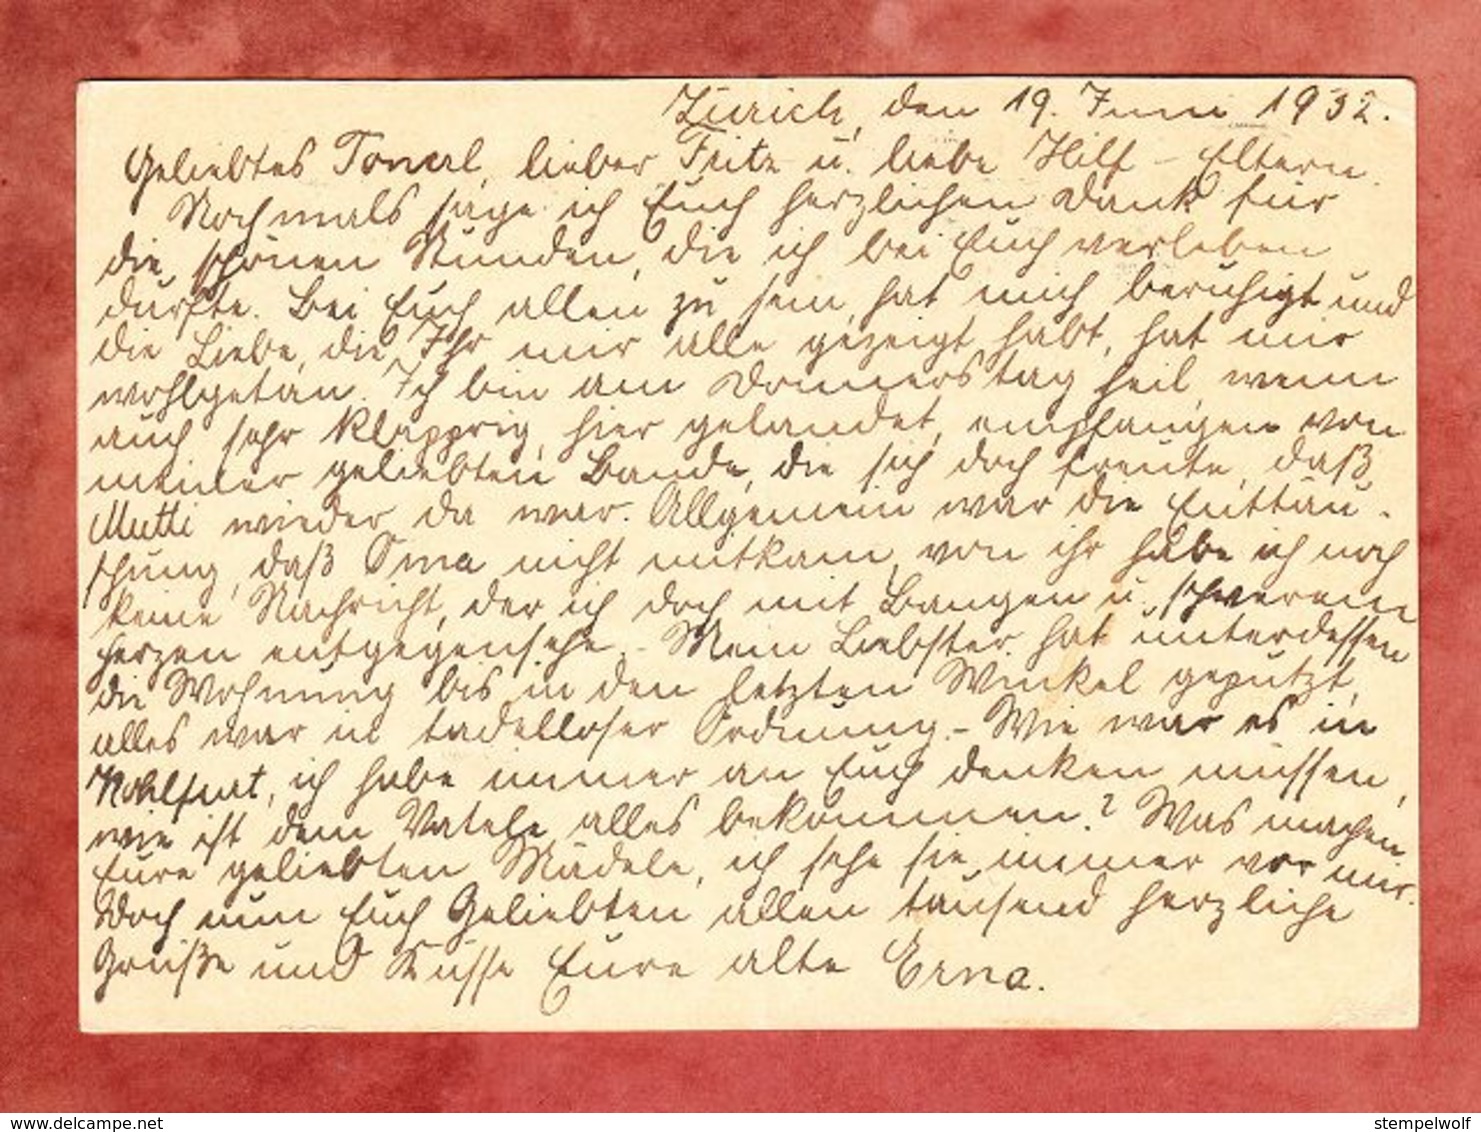 Zürich, den 19. Juni 1932.
Geliebtes Tonerl, lieber Fritz u. liebe Hilf-Eltern.
Nochmals sage ich Euch herzlichen Dank für
die schönen Stunden, die ich bei Euch verleben
durfte. Bei Euch allen zu sein, hat mich beruhigt und
die Liebe, die Ihr mir alle gezeigt habt, hat mir
wohlgetan. Ich bin am Donnerstag heil, wenn
auch sehr klapprig, hier gelandet, empfangen von
meiner geliebten Bande, die sich doch freute, daß
Mutti wieder da war. Allgemein war die Enttäu-
schung, daß Oma nicht mitkam, von ihr habe ich noch
keine Nachricht, der ich doch mit Bangen u. schwerem
Herzen entgegensehe. - Mein Liebster hat unterdessen
die Wohnung bis in den letzten Winkel geputzt,
alles war in tadelloser Ordnung. - Wie war es in
Kohlfurt, ich habe immer an Euch denken müssen,
wie ist dem Vatele alles bekommen? Was machen
Eure geliebten Mädele, ich sehe sie immer vor mir.
Doch nun Euch Geliebten allen tausend herzliche
Grüße und Küsse Eure alte Erna.
www.delcampe.net
stempelwolf